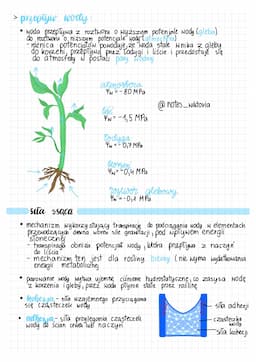 > przepływ wody:
• woda przepływa z roztworu o wyższym potencjale wody (gleba)
do roztworu o niższym potencjale wody (atmosfera)
- różnica potencjałów powoduje, że woda stale wnika z gleby
do korzeni, przepływa przez łodygi i liście i przedostaje się
do atmosfery w postaci pary wodnej
atmosfera
Ψw = -80 MPa
@notes_wiktovia
liść
Ψw = -1,5 MPa
łodyga
Ψw = -0,7 MPa
korzeń
Ψw = -0,4 MPa
roztwór glebowy
Ψw = -0,1 MPa
siła ssąca
• mechanizm wykorzystujący transpirację do podciągania wody w elementach
przewodzących drewna wbrew sile grawitacji, pod wpływem energii
słonecznej
- transpiracja obniża potencjał wody, która przepływa z naczyń
do liścia
- mechanizm ten jest dla rośliny bierny (nie wymaga wydatkowania
energii metabolicznej)
• parowanie wody wytwarza ujemne ciśnienie hydrostatyczne, co zasysa wodę
z korzenia i gleby, przez co woda płynie stale przez roślinę
• kohezja - siła wzajemnego przyciągania
się cząsteczek wody
• adhezja - siła przylegania cząsteczek
wody do ścian cewek lub naczyń
siła adhezji
cząsteczka
wody
siła kohezji